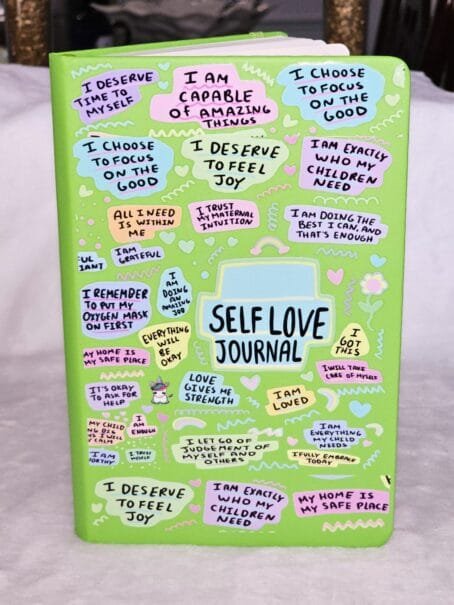 I DESERVE
TIME TO
MYSELF
I AM
CAPABLE
OF AMAZING
THINGS
I CHOOSE
TO FOCUS
ON THE
GOOD
I CHOOSE
TO FOCUS
ON THE
GOOD
I DESERVE
TO FEEL
JOY
I AM EXACTLY
WHO MY
CHILDREN
NEED
ALL I NEED
IS WITHIN
ME
I TRUST
MY MATERNAL
INTUITION
I AM DOING THE
BEST I CAN, AND
THAT'S ENOUGH
I AM
GRATEFUL
I REMEMBER
TO PUT MY
OXYGEN MASK
ON FIRST
I
AM
DOING
AN
AMAZING
JOB
SELF LOVE
JOURNAL
EVERYTHING
WILL
BE
OKAY
I
GOT
THIS
MY HOME IS
MY SAFE PLACE
I WILL TAKE
CARE OF MYSELF
IT'S OKAY
TO ASK FOR
HELP
LOVE
GIVES ME
STRENGTH
I AM
LOVED
MY CHILD
I
AM
ENOUGH
I AM
EVERYTHING
MY CHILD
NEEDS
I LET GO OF
JUDGEMENT OF
MYSELF AND
OTHERS
I AM
I TRUST
MYSELF
I FULLY EMBRACE
TODAY
I DESERVE
TO FEEL
JOY
I AM EXACTLY
WHO MY
CHILDREN
NEED
MY HOME IS
MY SAFE PLACE